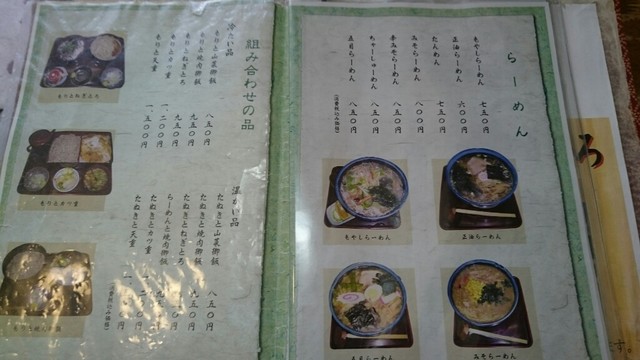 らーめん
もやしらーめん 七五〇円
正油らーめん 六〇〇円
たんめん 七五〇円
みそらーめん 八〇〇円
辛みそらーめん 八五〇円
ちゃーしゅーめん 八五〇円
五目らーめん 八五〇円
(消費税込み価格)
もやしらーめん
正油らーめん
五目らーめん
みそらーめん
組み合わせの品
冷たい品
もりと山菜御飯 八五〇円
もりと焼肉御飯 九五〇円
もりとねぎとろ 九五〇円
もりとカツ重 一、二〇〇円
もりと天重 一、五〇〇円
温かい品
たぬきと山菜御飯 八五〇円
たぬきと焼肉御飯 九五〇円
たぬきとねぎとろ 九五〇円
らーめんと焼肉御飯
たぬきとカツ重
たぬきと天重
(消費税込み価格)
もりとねぎとろ
もりとカツ重
ろ